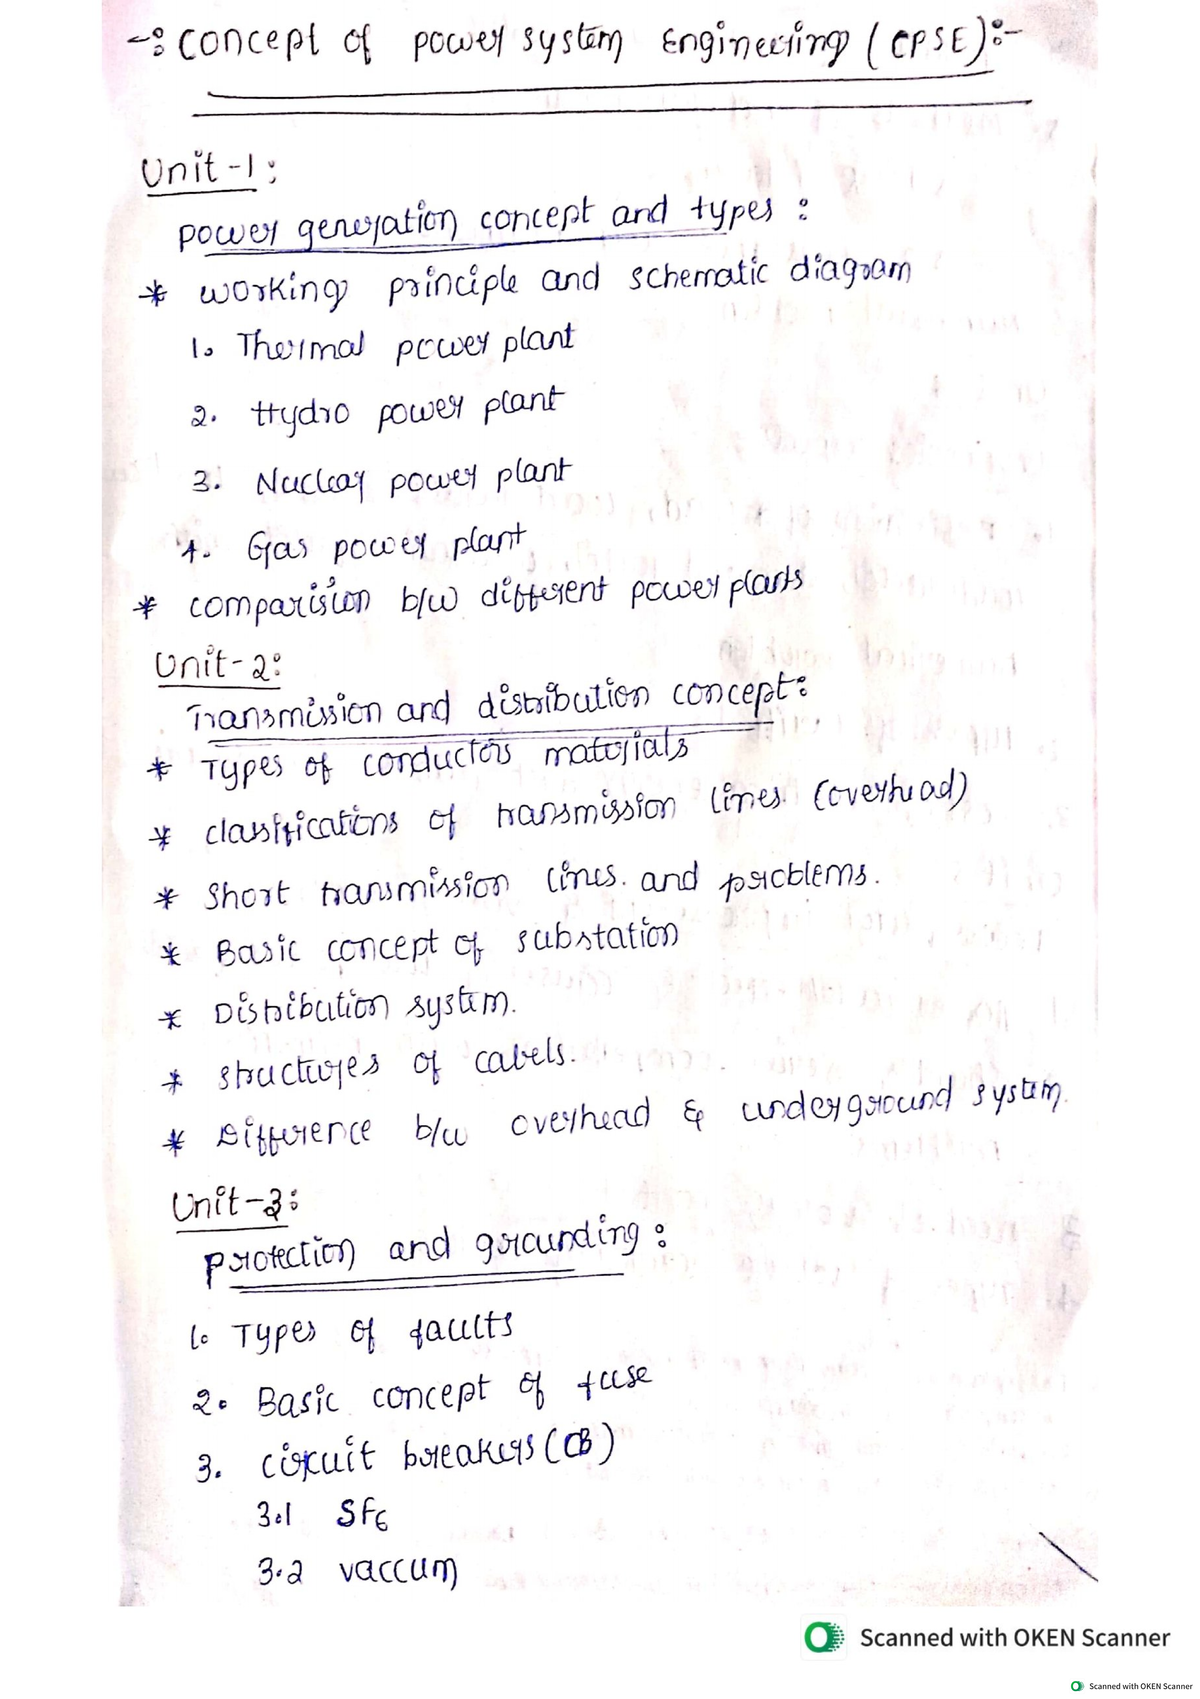 -: Concept of power system Engineering (CPSE):-
Unit-1:
power generation concept and types :
* working principle and schematic diagram
1. Thermal power plant
2. Hydro power plant
3. Nuclear power plant
4. Gas power plant
* comparision b/w different power plants
Unit-2:
Transmission and distribution concept:
* Types of conductors materials
* classifications of transmission lines (overhead)
* Short transmission lines. and problems.
* Basic concept of substation
* Distribution system.
* structures of cabels.
* Difference b/w overhead & underground system.
Unit-3:
protection and grounding :
1. Types of faults
2. Basic concept of fuse
3. circuit breakers (CB)
3.1 SF6
3.2 vaccum
Scanned with OKEN Scanner
Scanned with OKEN Scanner